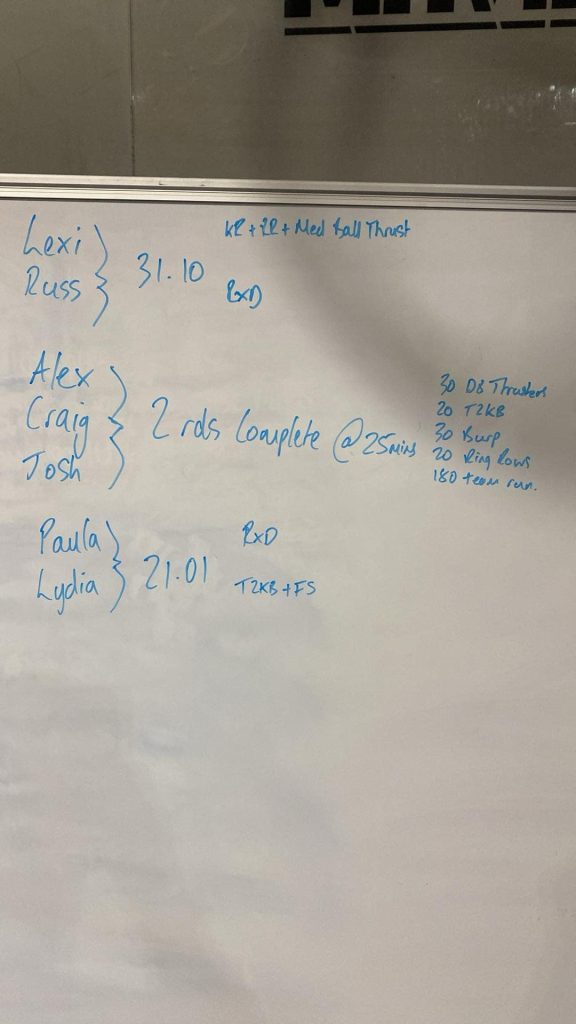 Lexi
Russ
31.10
KR + RR + Med Ball Thrust
RxD
Alex
Craig
Josh
2 rds Complete @ 25mins
30 DB Thrusters
20 T2KB
30 Burp
20 Ring Rows
180 team run.
Paula
Lydia
21.01
RxD
T2KB + FS